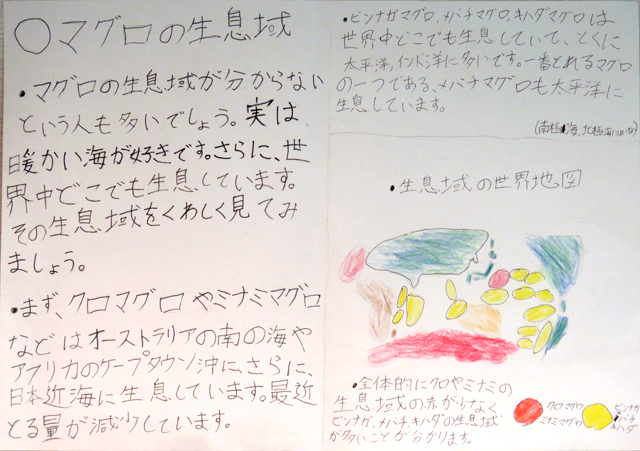 ○マグロの生息域
・マグロの生息域が分からない
という人も多いでしょう。実は、
暖かい海が好きです。さらに、世
界中どこでも生息しています。
その生息域をくわしく見てみ
ましょう。
・まず、クロマグロやミナミマグロ
などはオーストラリアの南の海や
アフリカのケープタウン沖に、さらに、
日本近海に生息しています。最近
とる量が減少しています。
・ビンナガマグロ、メバチマグロ、キハダマグロは
世界中どこでも生息していて、とくに
太平洋、インド洋に多いです。一番とれるマグロ
の一つである、メバチマグロも太平洋に
生息しています。
(南極海、北極海
・生息域の世界地図
・全体的にクロやミナミの
生息域の赤が少なく、
ビンナガ、メバチ、キハダの生息域
が多いことが分かります。
クロマグロ
ミナミマグロ
ビンナガ
メバチ
キハダ